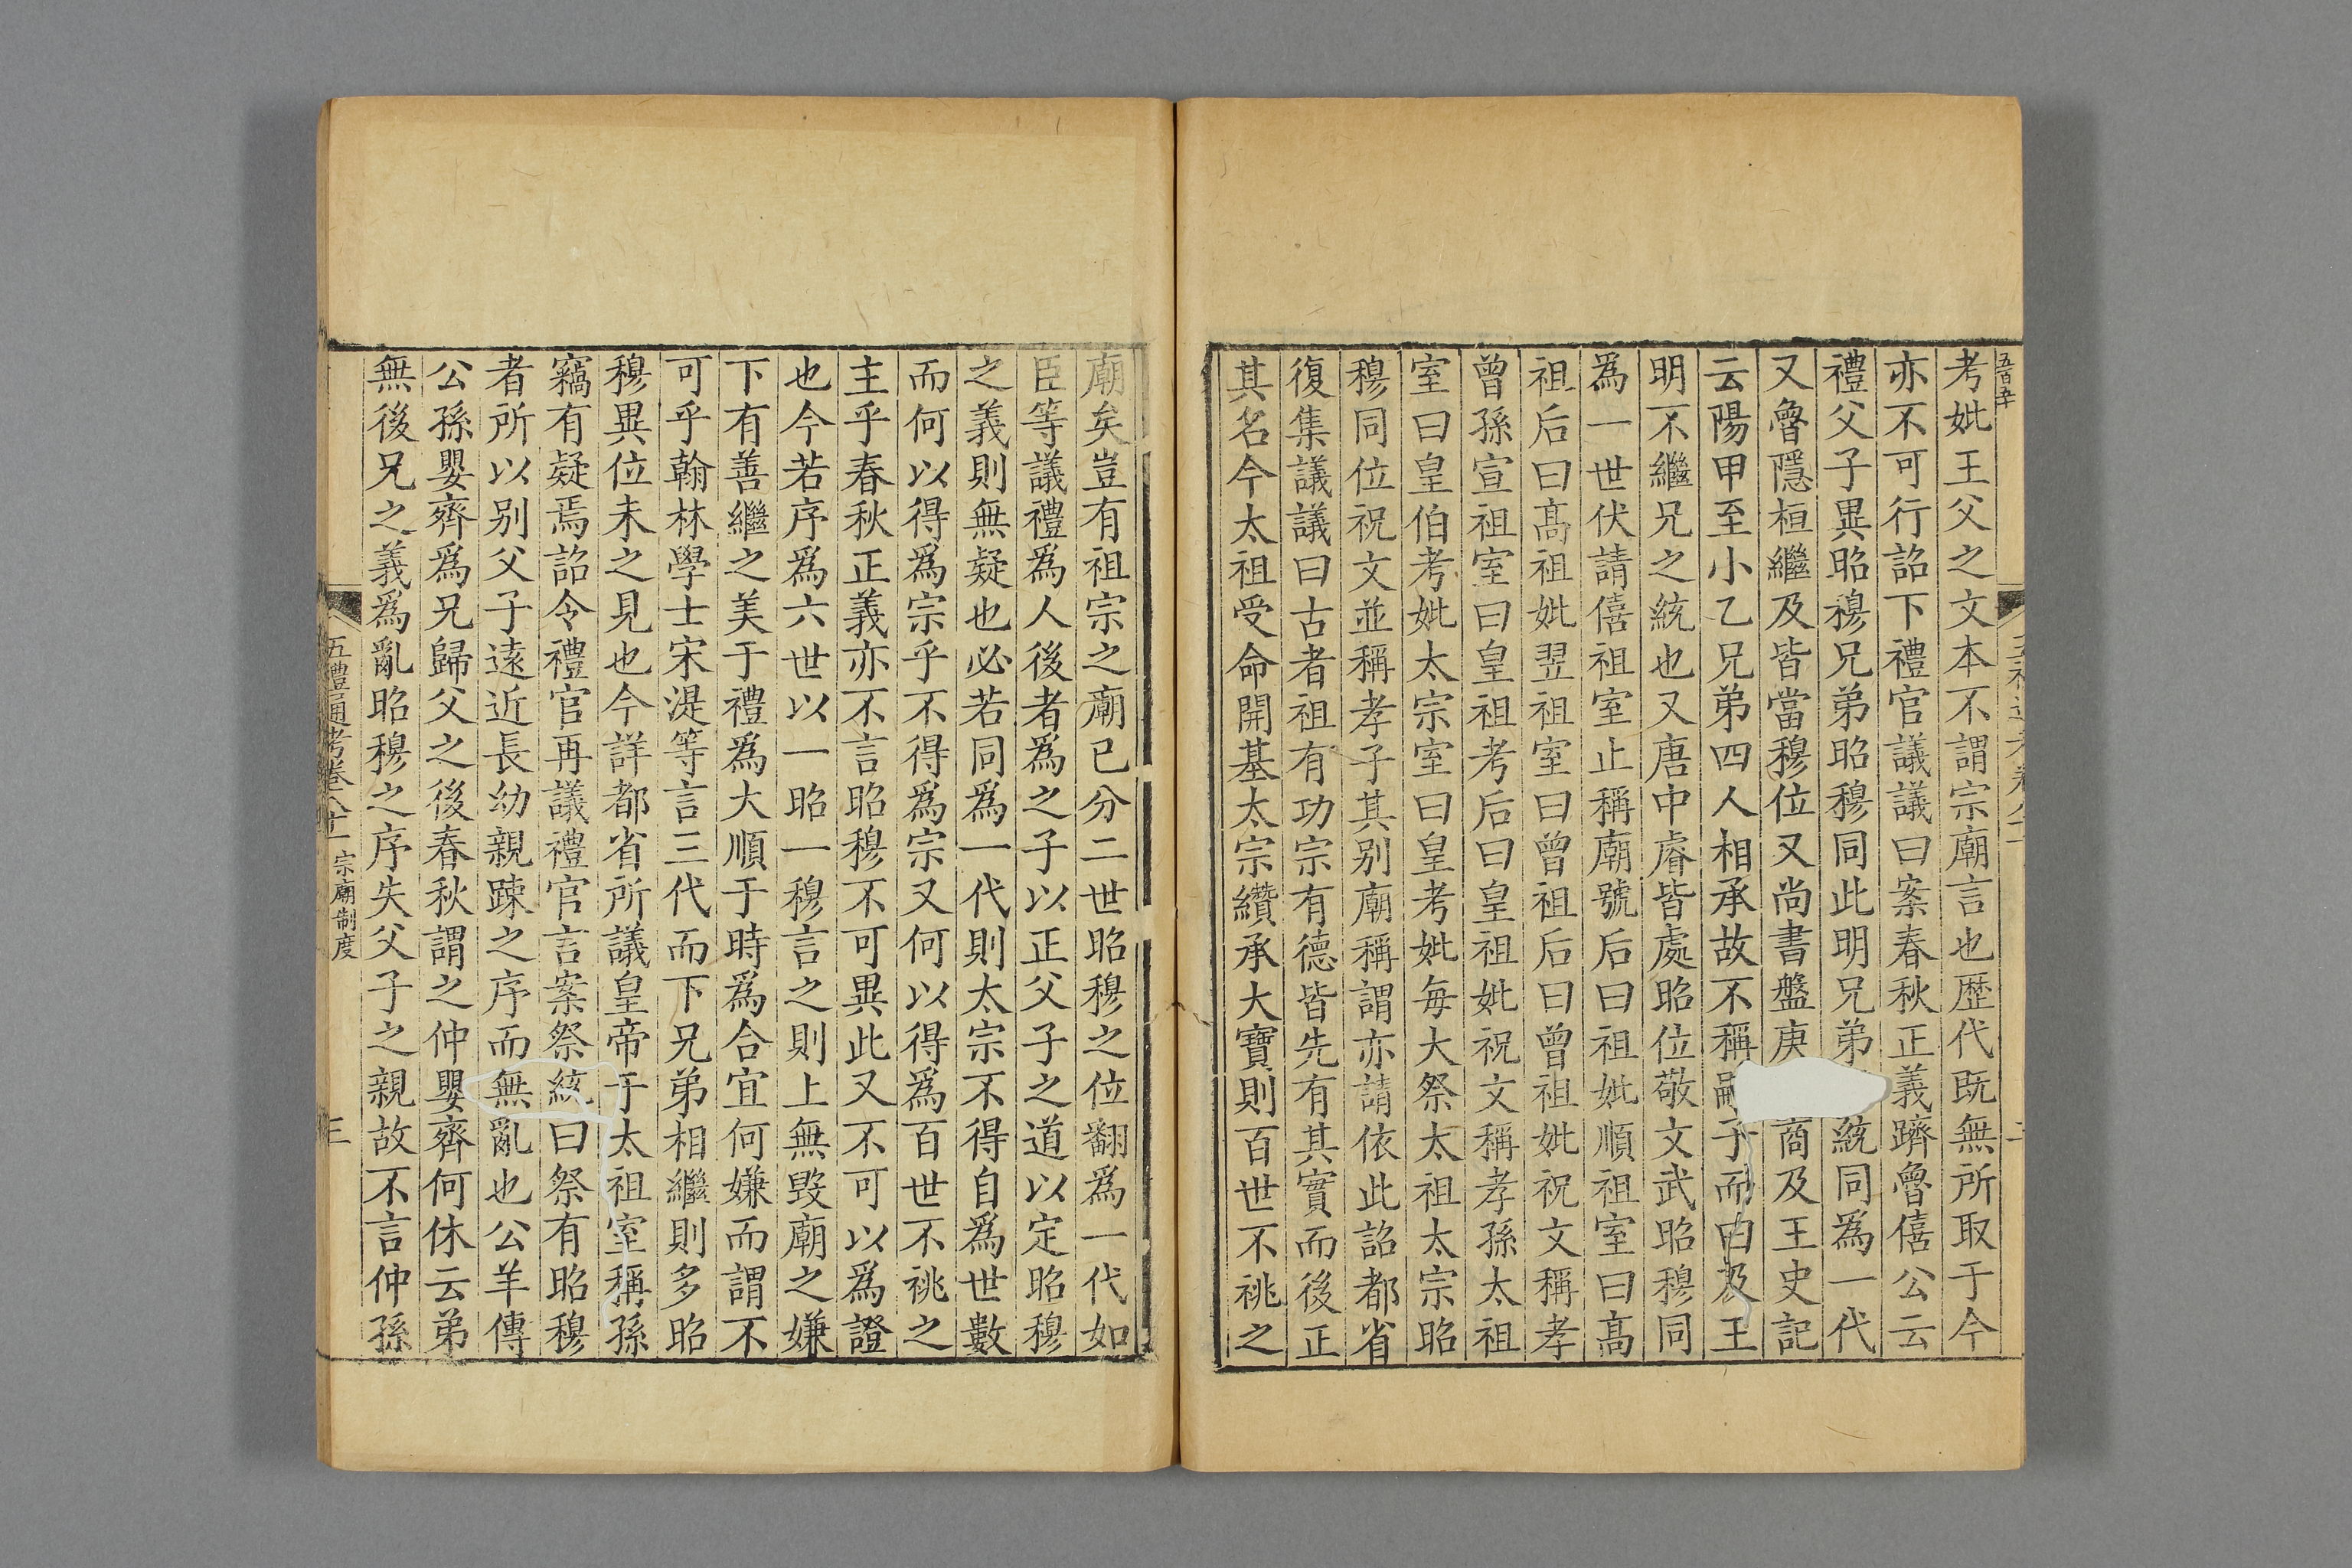 考妣王父之文本不謂宗廟言也歴代既無所取于今
亦不可行詔下禮官議議曰案春秋正義躋魯僖公云
禮父子異昭穆兄弟昭穆同此明兄弟統同爲一代
又魯隱桓繼及皆當穆位又尚書盤庚商及王史記
云陽甲至小乙兄弟四人相承故不稱嗣子而曰及王
明不繼兄之統也又唐中睿皆處昭位敬文武昭穆同
爲一世伏請僖祖室止稱廟號后曰祖妣順祖室曰髙
祖后曰髙祖妣翌祖室曰曾祖后曰曾祖妣祝文稱孝
曾孫宣祖室曰皇祖考后曰皇祖妣祝文稱孝孫太祖
室曰皇伯考妣太宗室曰皇考妣每大祭太祖太宗昭
穆同位祝文並稱孝子其别廟稱謂亦請依此詔都省
復集議議曰古者祖有功宗有德皆先有其實而後正
其名今太祖受命開基太宗纘承大寶則百世不祧之
廟矣豈有祖宗之廟已分二世昭穆之位翻爲一代如
臣等議禮爲人後者爲之子以正父子之道以定昭穆
之義則無疑也必若同爲一代則太宗不得自爲世數
而何以得爲宗乎不得爲宗又何以得爲百世不祧之
主乎春秋正義亦不言昭穆不可異此又不可以爲證
也今若序爲六世以一昭一穆言之則上無毀廟之嫌
下有善繼之美于禮爲大順于時爲合宜何嫌而謂不
可乎翰林學士宋湜等言三代而下兄弟相繼則多昭
穆異位未之見也今詳都省所議皇帝于太祖室稱孫
竊有疑焉詔令禮官再議禮官言案祭統曰祭有昭穆
者所以别父子逺近長幼親踈之序而無亂也公羊傳
公孫嬰齊爲兄歸父之後春秋謂之仲嬰齊何休云弟
無後兄之義爲亂昭穆之序失父子之親故不言仲孫
五禮通考卷八十一 宗廟制度
三